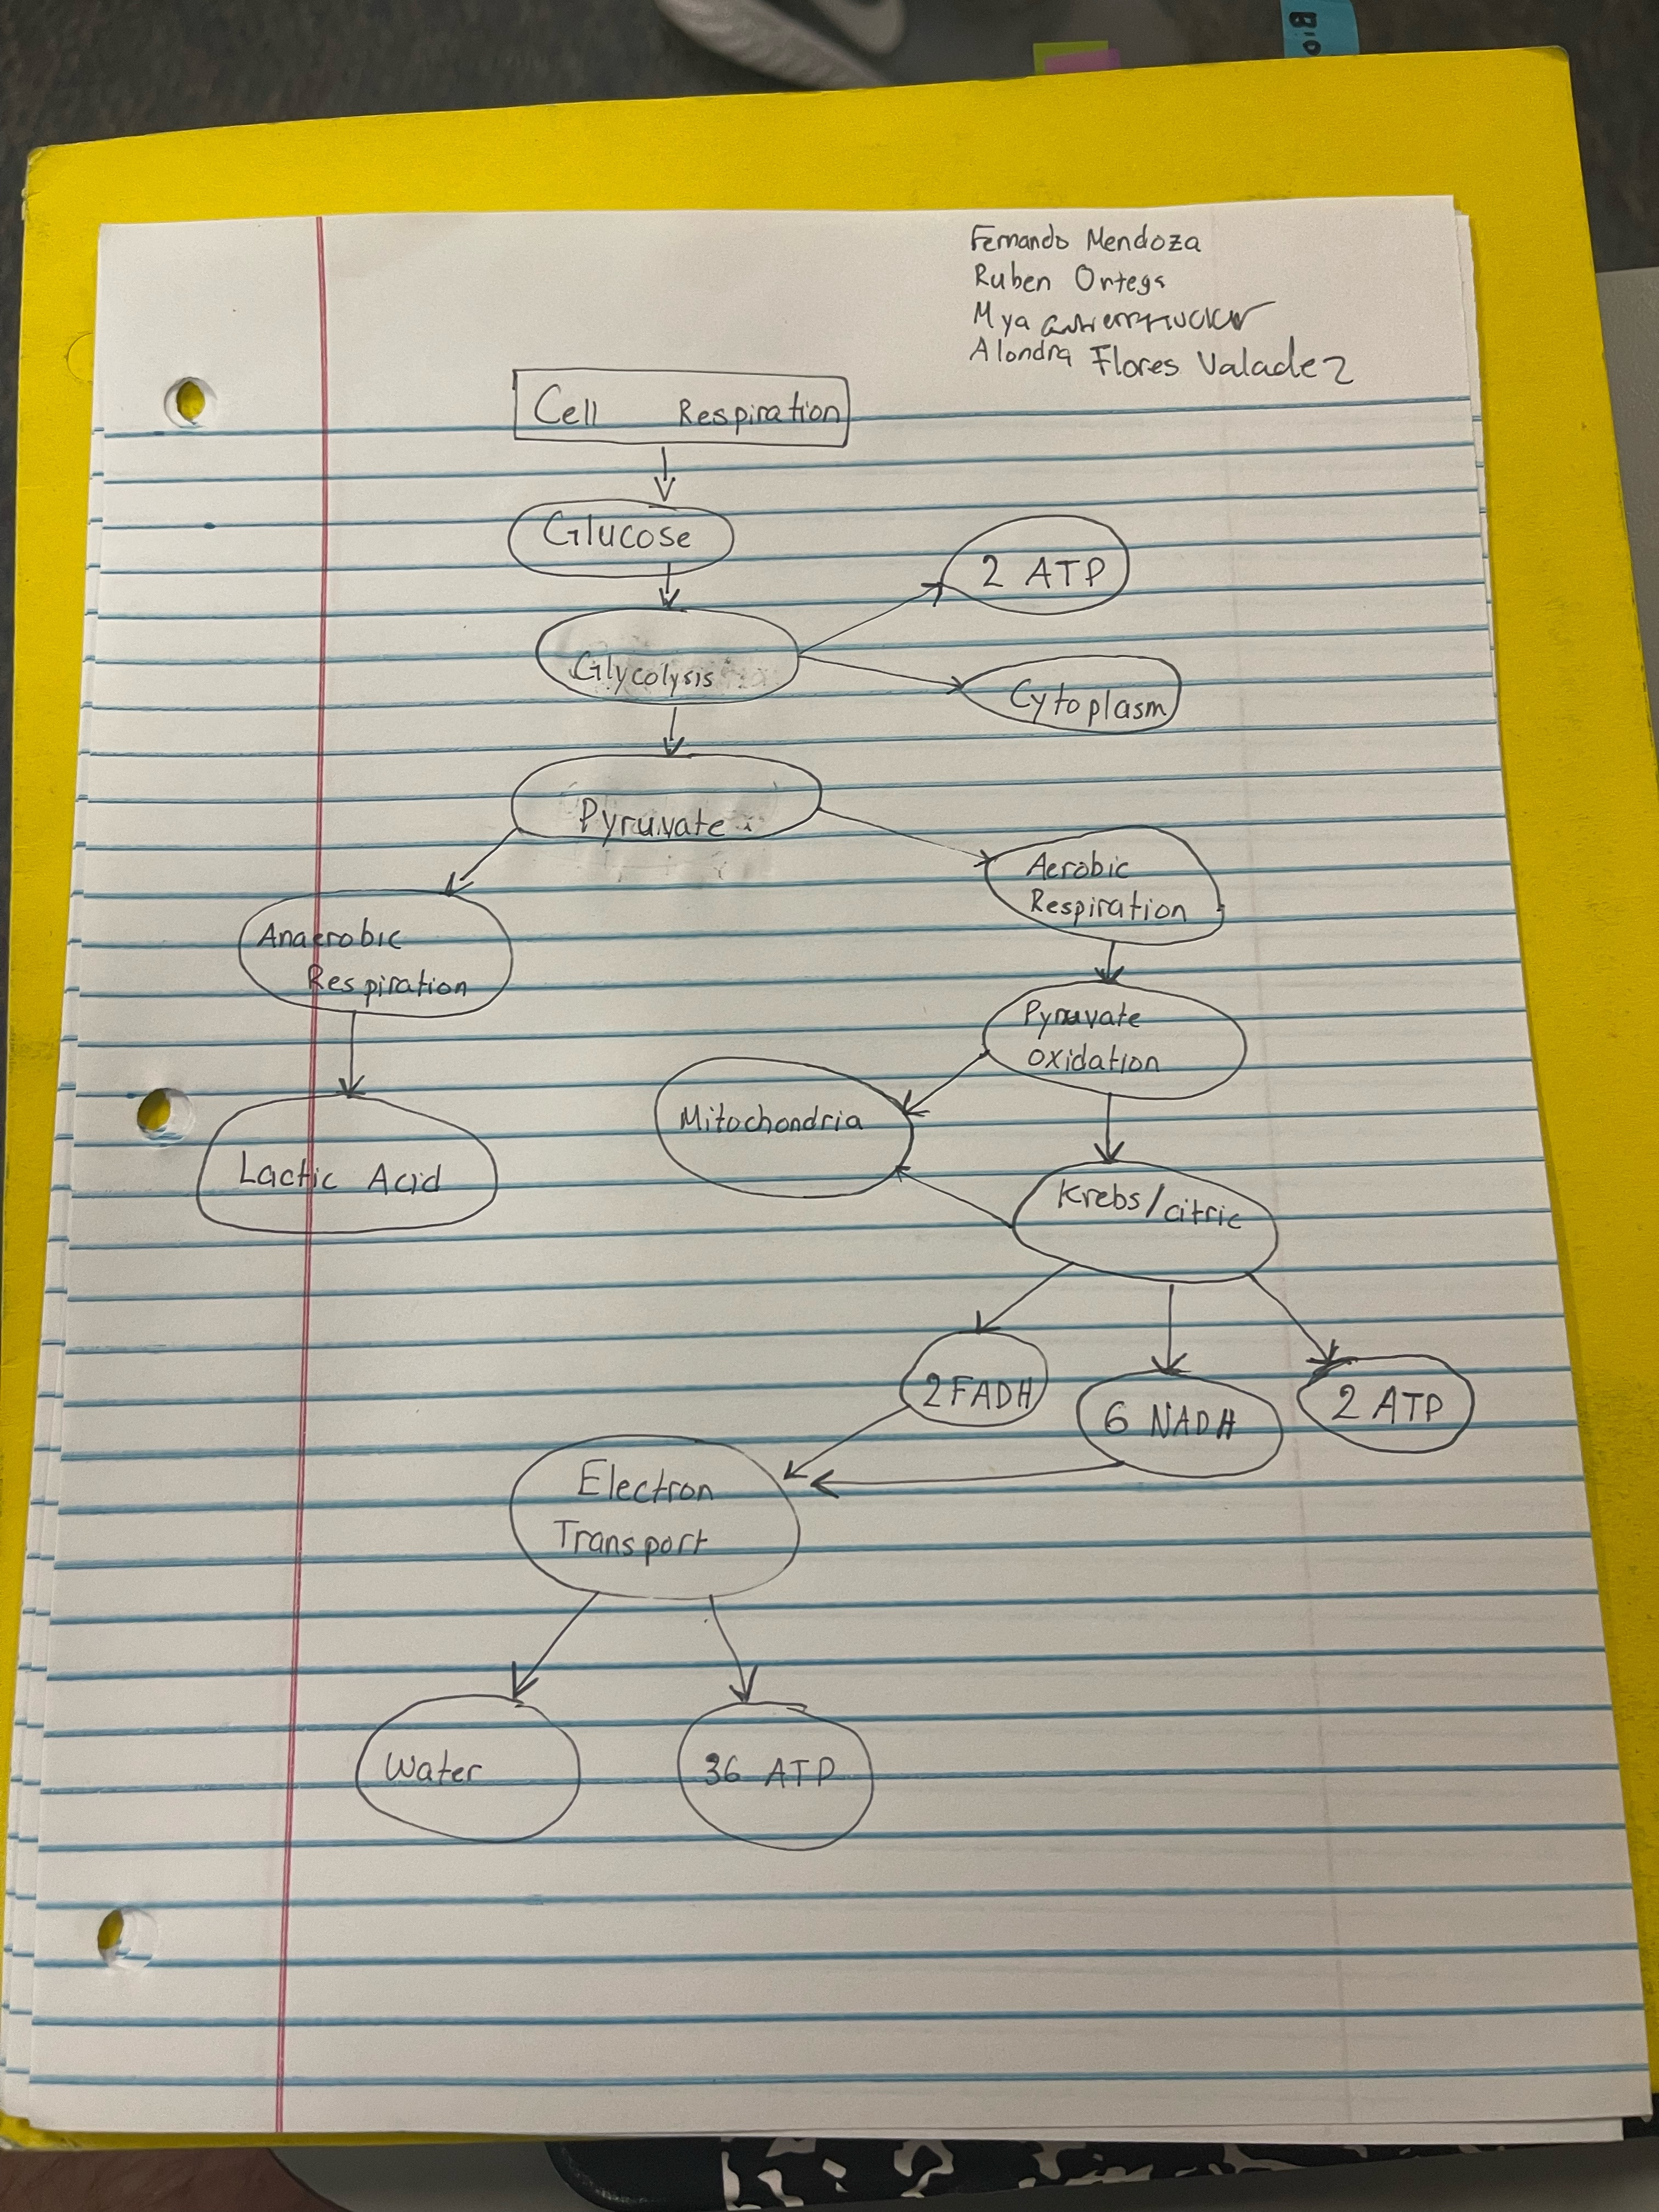 Bio
Fernando Mendoza
Ruben Ortega
Mya
Alondra Flores Valadez
Cell Respiration
Glucose
2 ATP
Glycolysis
Cytoplasm
Pyruvate
Aerobic
Respiration
Anaerobic
Respiration
Pyruvate
oxidation
Mitochondria
Lactic Acid
Krebs/citric
2 FADH
6 NADH
2 ATP
Electron
Transport
Water
36 ATP